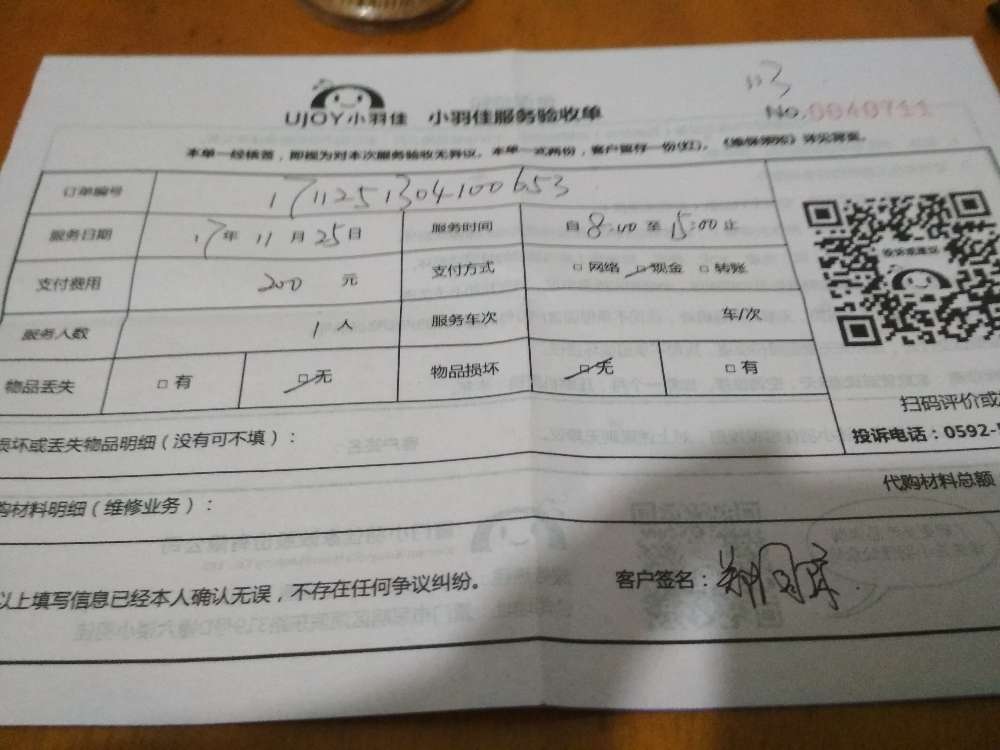 UJOY小羽佳 小羽佳服务验收单 No.0040711
本单一经核签，即视为对本次服务验收无异议。本单一式两份，客户留存一份(红)。
订单编号 1711251304100653
服务日期 17年11月25日 服务时间 自8:00至15:00止
支付费用 200 元 支付方式 □网络 □现金 □转账
服务人数 1人 服务车次 车/次
物品丢失 □有 □无 物品损坏 □无 □有
扫码评价或
损坏或丢失物品明细（没有可不填）：
投诉电话：0592-
购材料明细（维修业务）：
代购材料总额
以上填写信息已经本人确认无误，不存在任何争议纠纷。
客户签名：